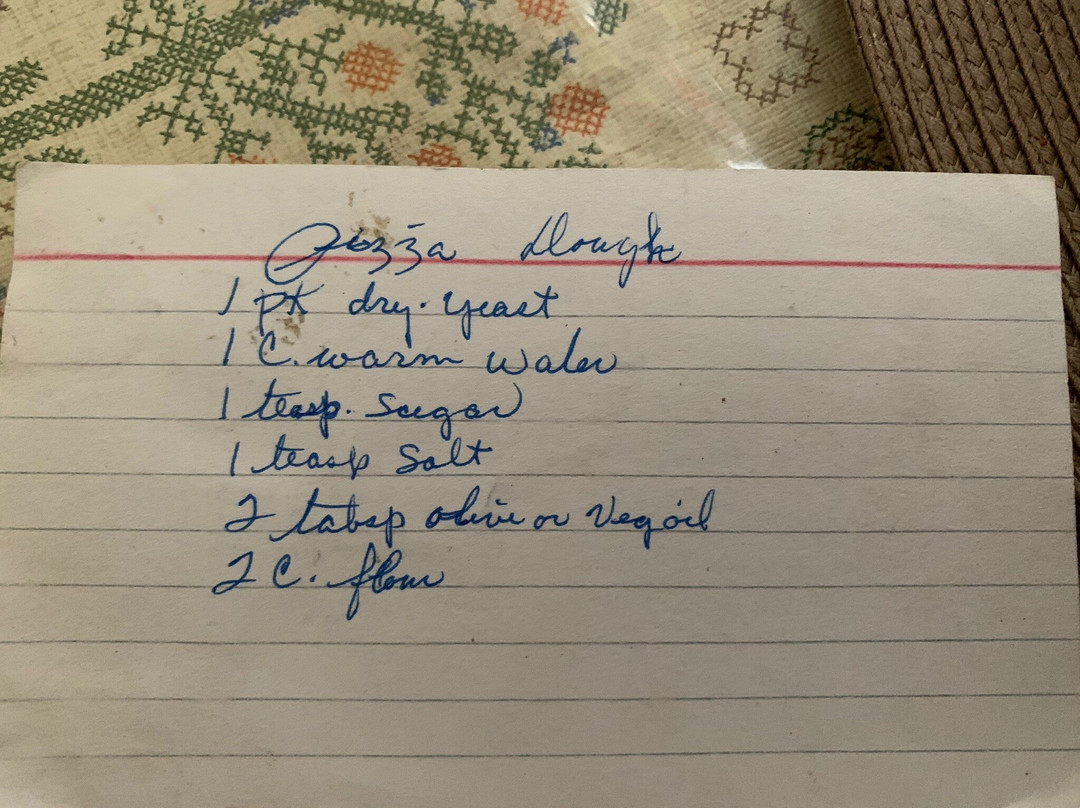 Pizza Dough
1 pk dry. yeast
1 C. warm water
1 teasp. Sugar
1 teasp Salt
2 tabsp olive or Veg oil
2 C. flour